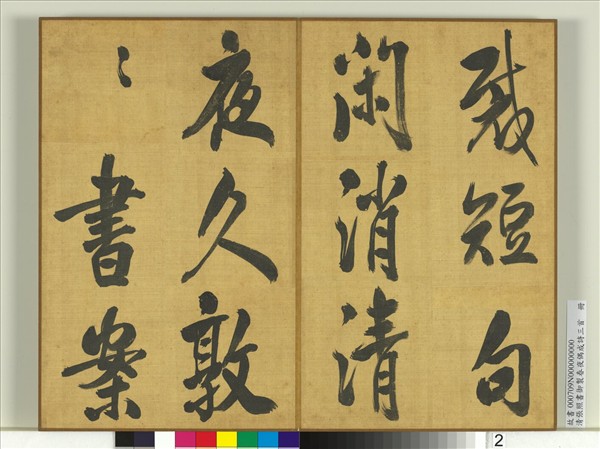 裁短句
閑消清
夜久敦
〻書案
故書 000709N000000000
清張照書御製春夜偶成詩三首 冊
2